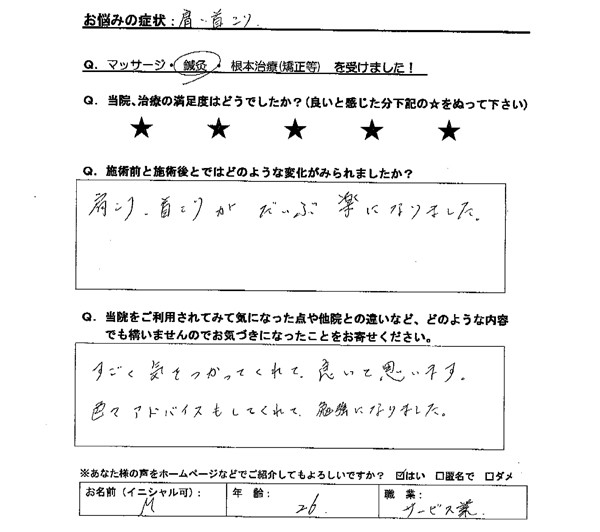 お悩みの症状：肩・首こり
Q．マッサージ・鍼灸・根本治療(矯正等)　を受けました！
Q．当院、治療の満足度はどうでしたか？（良いと感じた分下記の☆をぬって下さい）
★　★　★　★　★
Q．施術前と施術後とではどのような変化がみられましたか？
肩こり、首こりが　だいぶ　楽になりました。
Q．当院をご利用されてみて気になった点や他院との違いなど、どのような内容
でも構いませんのでお気づきになったことをお寄せください。
すごく　気をつかってくれて、良いと思います。
色々アドバイスもしてくれて、勉強になりました。
※あなた様の声をホームページなどでご紹介してもよろしいですか？　☑はい　□匿名で　□ダメ
お名前（イニシャル可）：　M　年　齢：　26　職　業：　サービス業